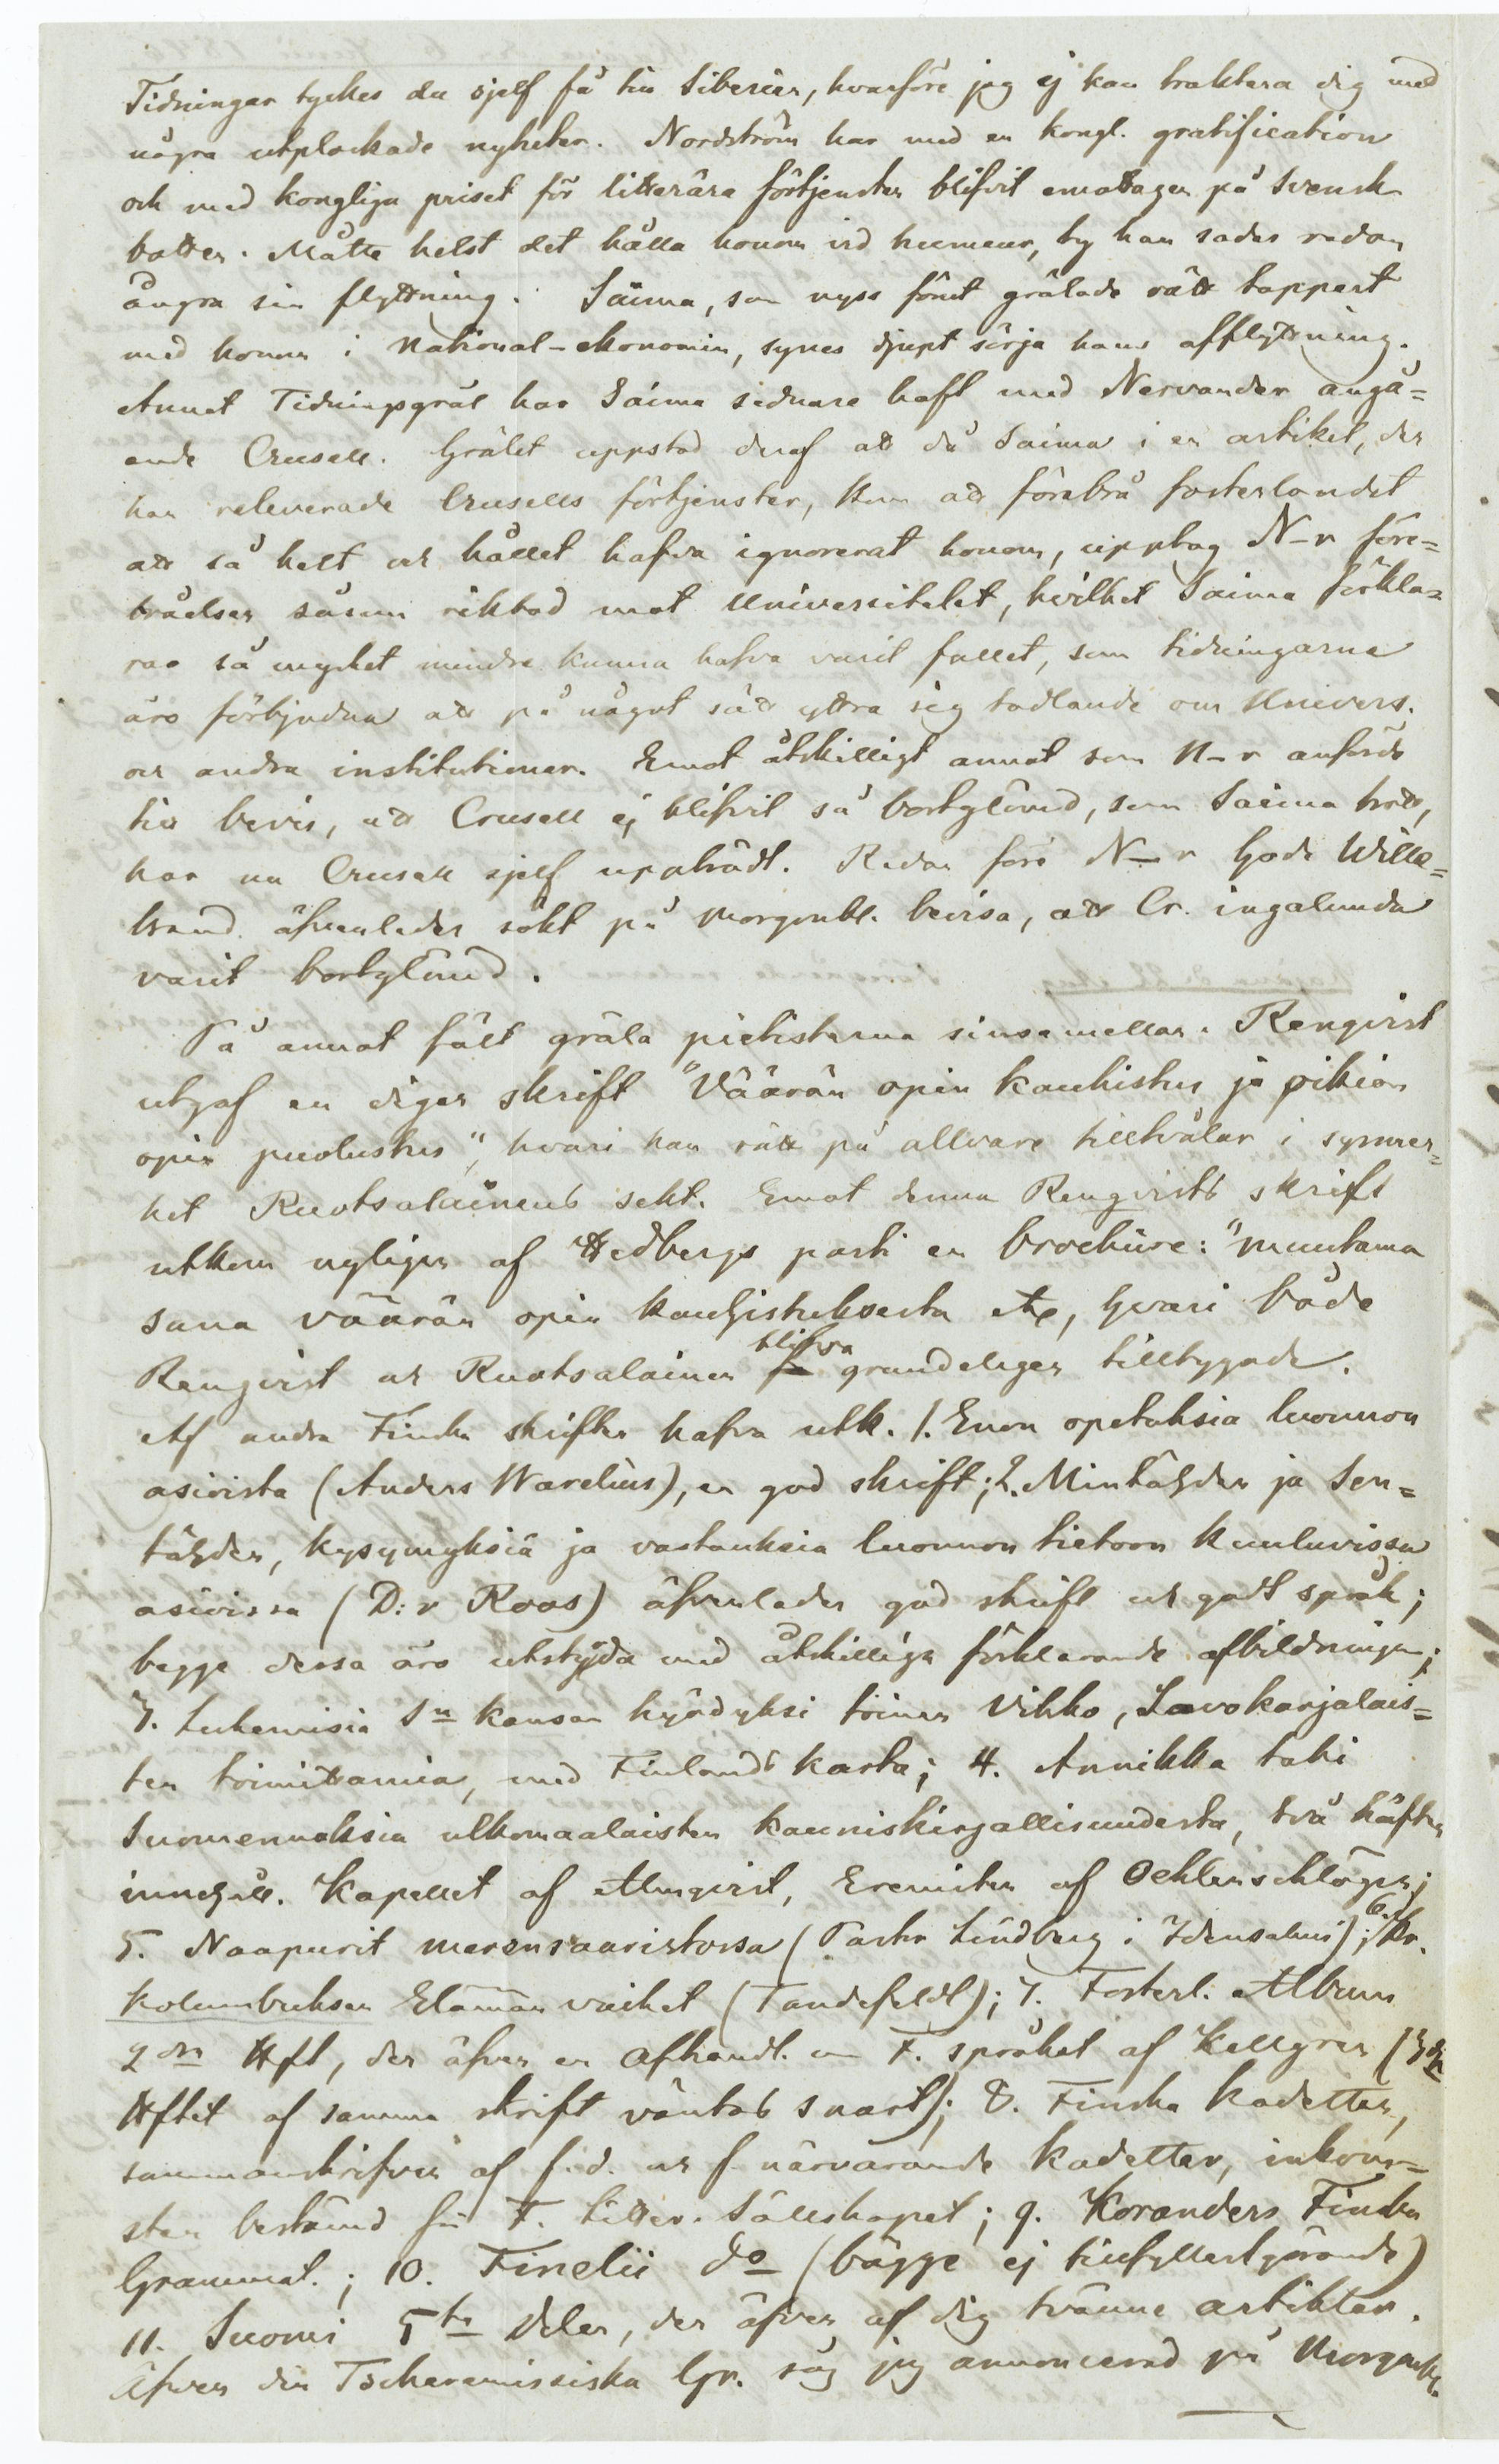 Tidningar tyckes du sjelf få till Siberien, hvarföre jag ej kan traktera dig med
några utplockade nyheter. Nordström har med en kongl. gratification
och med kongliga priset för litterära förtjenster blifvit emottagen på Svensk
botten. Måtte helst det hålla honom vid humeur, ty han sades redan
ångra sin flyttning. Saima, som nyss förut grälade rätt tappert
med honom i National-ekonomin, synes djupt sörja hans afflyttning.
Annat Tidningsgräl har Saima sednare haft med Nervander angå=
ende Crusell. Grälet uppstod deraf att då Saima i en artikel, der
han releverade Crusells förtjenster, kom att förebrå fosterlandet
att så helt och hållet hafva ignorerat honom, upptog N-r före=
bråelsen såsom riktad mot Universitetet, hvilket Saima förkla=
rar så mycket mindre kunna hafva varit fallet, som tidningarna
äro förbjudna att på något sätt yttra sig tadlande om Univers.
och andra institutioner. Emot åtskilligt annat som N-r anförde
till bevis, att Crusell ej blifvit så bortglömd, som Saima trott,
har nu Crusell sjelf uppträdt. Redan före N-r hade Wille=
brand äfvenledes sökt på Morgonbl. bevisa, att Cr. ingalunda
varit bortglömd.
På annat fält gräla pietisterna sinsemellan. Renqvist
utgaf en diger skrift "Väärän opin kauhistus ja oikian
opin puolustus", hvari han rätt på allvare tilltalar i synner=
het Ruotsalainens sekt. Emot denna Renqvists skrift
utkom nyligen af Hedbergs parti en brochüre: "Muutama
sana väärän opin kauhistuksesta etc, hvari både
Renqvist och Ruotsalainen blifva grundeligen tilltygade.
Af andra Finska skrifter hafva utk. 1. Enon opetuksia luonnon
asioista (Anders Warelius), en god skrift; 2. Mintähden ja Sen=
tähden, kysymyksiä ja vastauksia luonnon tietoon kuuluvissa
asioissa (D:r Roos) äfvenledes god skrift och godt språk;
begge dessa äro utstyrda med åtskilliga förklarande afbildningar;
3. Lukemisia Sn kansan hyödyksi toinen Vihko, Savokarjalais=
ten toimittamia, med Finlands karta; 4. Annikka taki
Suomennoksia ulkomaalaisten kauniskirjallisuudesta, två häften
innehåll. Kapellet af Almqvist, Eremiten af Oehlenschläger;
5. Naapurit merensaaristossa (Pastor Lindberg i Idensalmi); 6. Kr.
Kolumbuksen Elämän vaiheet (Tandefeldt); 7. Fosterl. Album
2dra Hft, der äfven en Afhandl. om F. språket af Kellgren (3dje
Hftet af samma skrift väntas snart); 8. Finska Kadetten,
sammanskrifven af f.d. och f. närvarande kadetter, inkom=
sten bestämd för F. Litter. Sällskapet; 9. Koranders Finska
Grammat.; 10. Finelii do (bägge ej tillfyllestgörande)
11. Suomi 5te delen, der äfven af dig tvänne artiklar.
Äfven din Tscheremissiska Gr. såg jag annoncerad på Morgonbl.